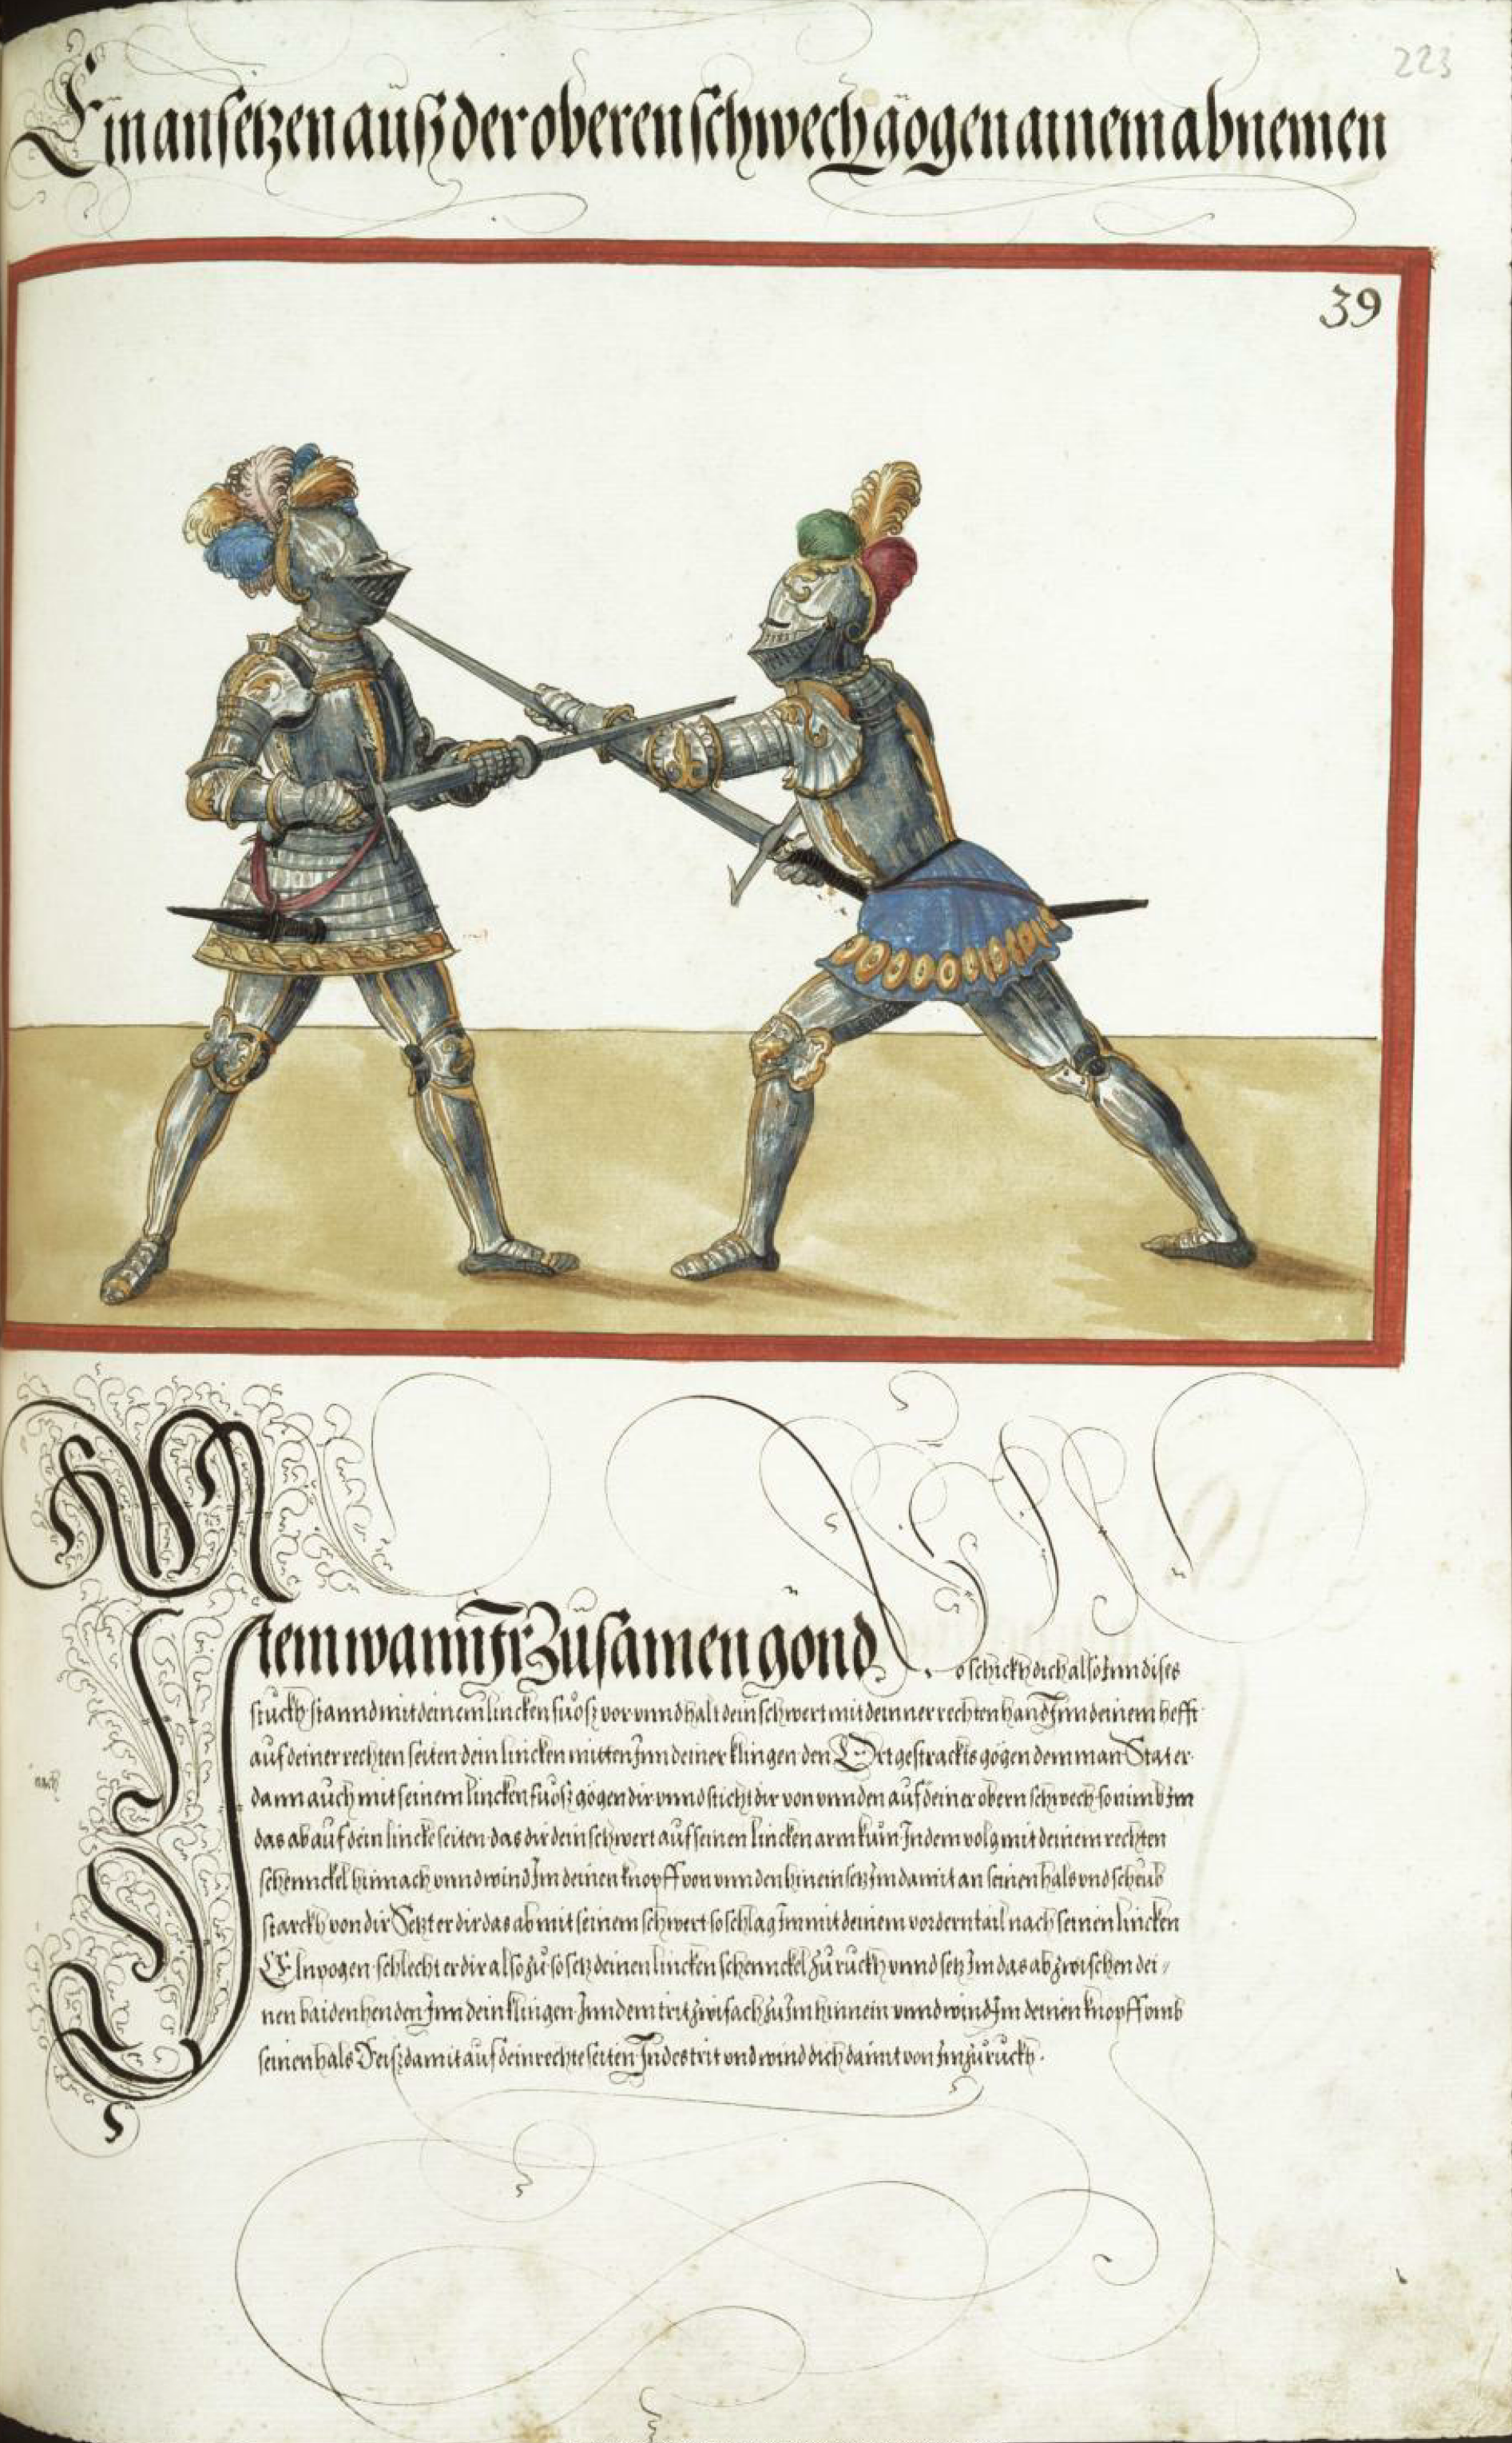 223
Ein ansetzen auß der oberen schwech gögen ainem abnemen
39
Item wann Ir zusamen gond so schickh dich also Inn dises
stuckh stannd mit deinem lincken fuoß vor unnd halt dein schwert mit deinner rechten hand Inn deinem hefft
auf deiner rechten seiten dein lincken mitten Inn deiner klingen den Ort gestrackts gögen dem man Stat er
dann auch mit seinem lincken fuoß gögen dir unnd sticht dir von unnden auf deiner obern schwech so nimb Im
nach
das ab auf dein lincke seiten das dir dein schwert auf seinen lincken arm kum Indem volg mit deinem rechten
schennckel hinnach unnd wind Im deinen knopff von unnden hinein setz Im damit an seinen hals und scheub
starckh von dir Setzt er dir das ab mit seinem schwert so schlag Im mit deinem vordern tail nach seinen lincken
Elnpogen schlecht er dir also zu so setz deinen lincken schennckel zuruckh unnd setz Im das ab zwischen dei-
nen baiden henden Inn dein klingen Inn dem trit zwifach zu Im hinnein unnd wind Im deinen knopff omb
seinen hals Reiß damit auf dein rechte seiten Indes trit und wind dich damit von Im zuruckh.